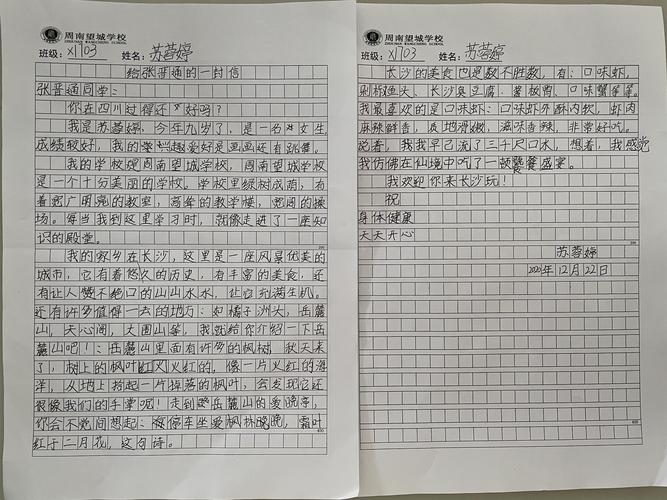 周南望城学校
ZHOUNAN WANGCHENG SCHOOL
班级：X1703 姓名：苏蓉婷
给张晋通的一封信
张晋通同学：
你在四川过得还好吗？
我是苏蓉婷，今年九岁了，是一名女生，
成绩较好，我的兴趣爱好是画画还有跳舞。
我的学校是周南望城学校，周南望城学校
是一个十分美丽的学校。学校里绿树成荫，有
着宽广明亮的教室，高耸的教学楼，宽阔的操
场。每当我到这里学习时，就像走进了一座知
识的殿堂。
200
我的家乡在长沙，这里是一座风景优美的
城市，它有着悠久的历史，有丰富的美食，还
有让人赞不绝口的山山水水，让它充满生机。
还有许多值得一去的地方：如橘子洲头，岳麓
山，天心阁，大围山等，我就给你介绍一下岳
麓山吧！：岳麓山里面有许多的枫树，秋天来
了，树上的枫叶红又火红的，像一片火红的海
洋，从地上拾起一片掉落的枫叶，会发现它还
很像我们的手掌呢！走到岳麓山的爱晚亭，
你会不觉间想起：停车坐爱枫林晚，霜叶
红于二月花，这句诗。
400
周南望城学校
ZHOUNAN WANGCHENG SCHOOL
班级：X1703 姓名：苏蓉婷
长沙的美食也是数不胜数，有：口味虾，
剁椒鱼头、长沙臭豆腐、酱板鸭、口味蟹等等。
我最喜欢的是口味虾：口味虾外酥内软，虾肉
麻辣鲜香，质地滑嫩，滋味香辣，非常好吃。
说着，我早已流了三千尺口水，想着，我感觉
我仿佛在仙境中吃了一顿饕餮盛宴。
我欢迎你来长沙玩！
祝
身体健康
天天开心
200
苏蓉婷
2020年12月22日
400